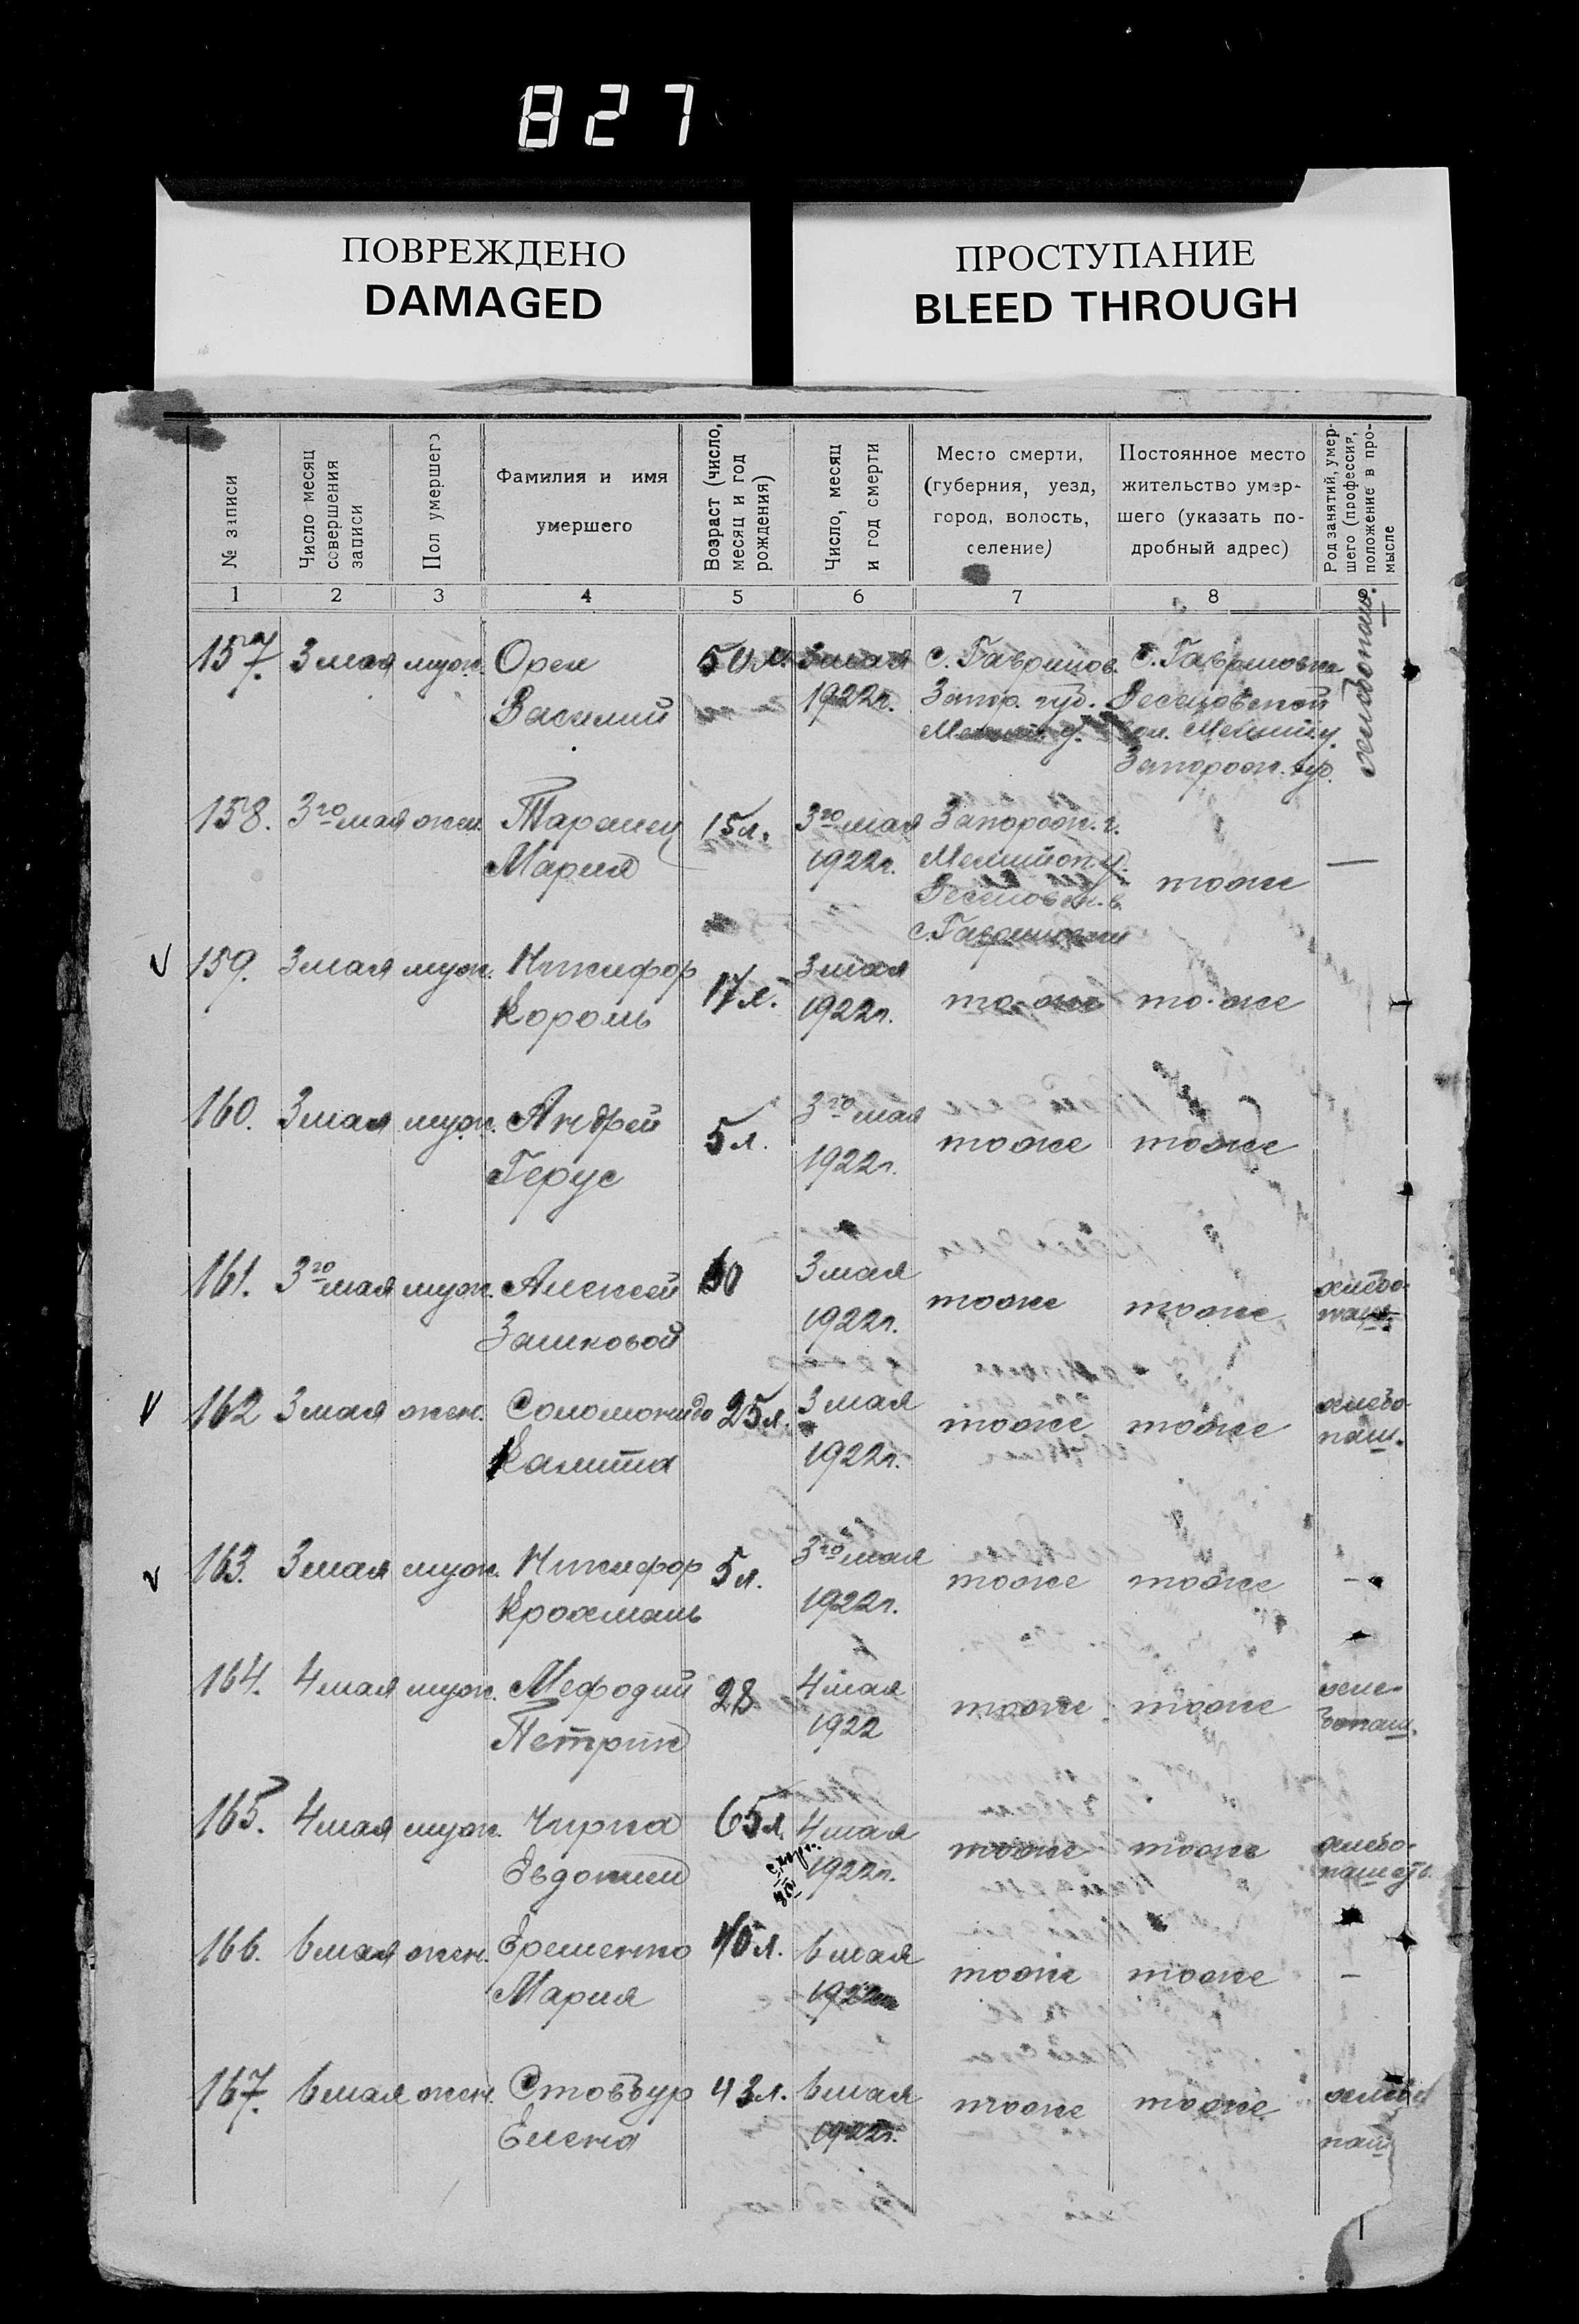 827
ПОВРЕЖДЕНО
DAMAGED
ПРОСТУПАНИЕ
BLEED THROUGH
№ записи
Число месяц
совершения
записи
Пол умершего
Фамилия и имя
умершего
Возраст (число,
месяц и год
рождения)
Число, месяц
и год смерти
Место смерти,
(губерния, уезд,
город, волость,
селение)
Постоянное место
жительство умер-
шего (указать по-
дробный адрес)
Род занятий, умер-
шего (профессия,
положение в про-
мысле
1 2 3 4 5 6 7 8
157. 3 мая муж. Орел 50 л. 3 мая с. Гаврилов. с. Гавриловки
Василий 1922г. Запор. губ. Веселовской
Мелит. у. вол. Мелит. у.
Запорож. гур.
хлебопаш.
158. 3го мая жен. Таранец 15 л. 3го мая Запорож. г.
Мария 1922г. Мелитоп. у. тоже —
Веселовск. в.
с. Гавриловки
159. 3 мая муж. Никифор 17 л. 3 мая
Король 1922г. то-же то-же
160. 3 мая муж. Андрей 5 л. 3го мая тоже тоже
Герус 1922г.
161. 3го мая муж. Алексей 3 мая тоже тоже хлебо-
Зашковой 1922г. паш.
162 3 мая жен. Соломонида 25 л. 3 мая тоже тоже хлебо-
Калита 1922г. паш.
163. 3 мая муж. Никифор 5 л. 3го мая тоже тоже -
Крохмаль 1922г.
164. 4 мая муж. Мефодий 28 4 мая тоже тоже хле-
Петрик 1922 бопаш.
165. 4 мая муж. Чирка 65 л. 4 мая тоже тоже хлебо-
Евдоким 1922г. пашеств.
166. 6 мая жен. Еременко 40 л. 6 мая тоже тоже —
Мария 1922г
167. 6 мая жен. Стовбур 43 л. 6 мая тоже тоже хлебо
Елена 1922г. паш